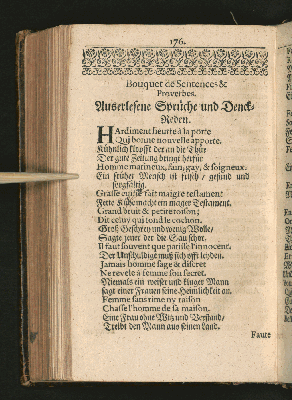 176.
Bouquet de Sentences &
Proverbes.
Auserlesene Sprüche und Denck-
Reden.
HArdiment heurte à la porte
Qui bonne nouvelle apporte.
Kühnlich klopfft der an die Thür
Der gute Zeitung bringt herfür
Homme matineux, sain, gay, & soigneux.
Ein früher Mensch ist frisch / gesund und
sorgfältig.
Grasse cuisine fait maigre testament
Fette Küche macht ein mager Testament.
Grand bruit & petite toison;
Dit celuy qui tond le cochon.
Groß Geschrey und wenig Wolle /
Sagte jener der die Sau schor.
Il faut souvent que patisse l'innocent.
Der Unschuldige muß sich offt leyden.
Jamais homme sage & discret
Ne revele à femme son secret.
Niemals ein weiser und kluger Mann
sagt einer Frauen seine Heimlichkeit an.
Femme sans rime ny raison
Chasse l'homme de sa maison.
Eine Frau ohne Witz und Verstand /
Treibt den Mann aus seinen Land.
Faute